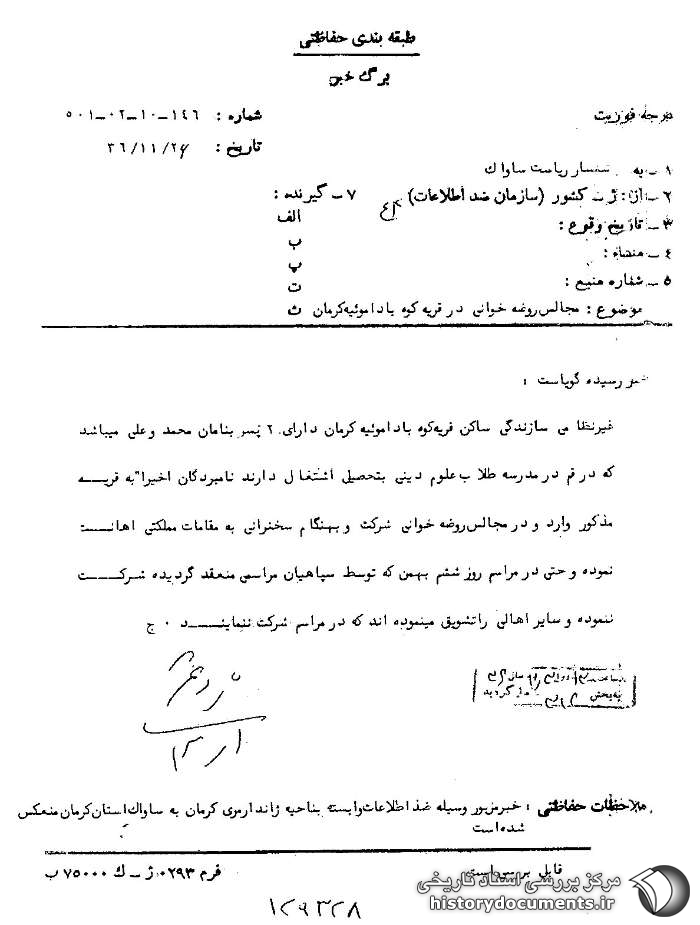 طبقه بندی حفاظتی
برگ خبر
درجه فوریت
شماره : ۱۴۶-۱۰-۰۲-۵۰۱
تاریخ : ۳۶/۱۱/۲۴
۱- به ریاست ساواک
۲- از : ژ کشور (سازمان ضد اطلاعات)
۷- گیرنده :
۳- تاریخ وقوع :
الف
۴- منشاء :
ب
پ
۵- شماره منبع :
ت
موضوع : مجالس روضه خوانی در قریه کوه باداموئیه کرمان
ث
خبر رسیده گویاست :
غیرنظامی سازندگی ساکن قریه کوه باداموئیه کرمان دارای ۲ پسر بنامان محمد و علی میباشد
که در قم در مدرسه طلاب علوم دینی بتحصیلی اشتغال دارند نامبردگان اخیرا" به قریه
مذکور وارد و در مجالس روضه خوانی شرکت و بهنگام سخنرانی به مقامات مملکتی اهانت
نموده و حتی در مراسم روز ششم بهمن که توسط سپاهیان مراسمی منعقد گردیده شرکت
ننموده و سایر اهالی راتشویق مینموده اند که در مراسم شرکت ننمایند ۰ ج
ملاحظات حفاظتی : خبر مزبور وسیله ضد اطلاعات وابسته بناحیه ژاندارمری کرمان به ساواک استان کرمان منعکس
شده است
فرم ۰۲۹۳ ژ - ک ۷۵۰۰۰ ب
قابل بررسی است
مرکز بررسی اسناد تاریخی
historydocuments.ir
۱۲۹۳۲۸